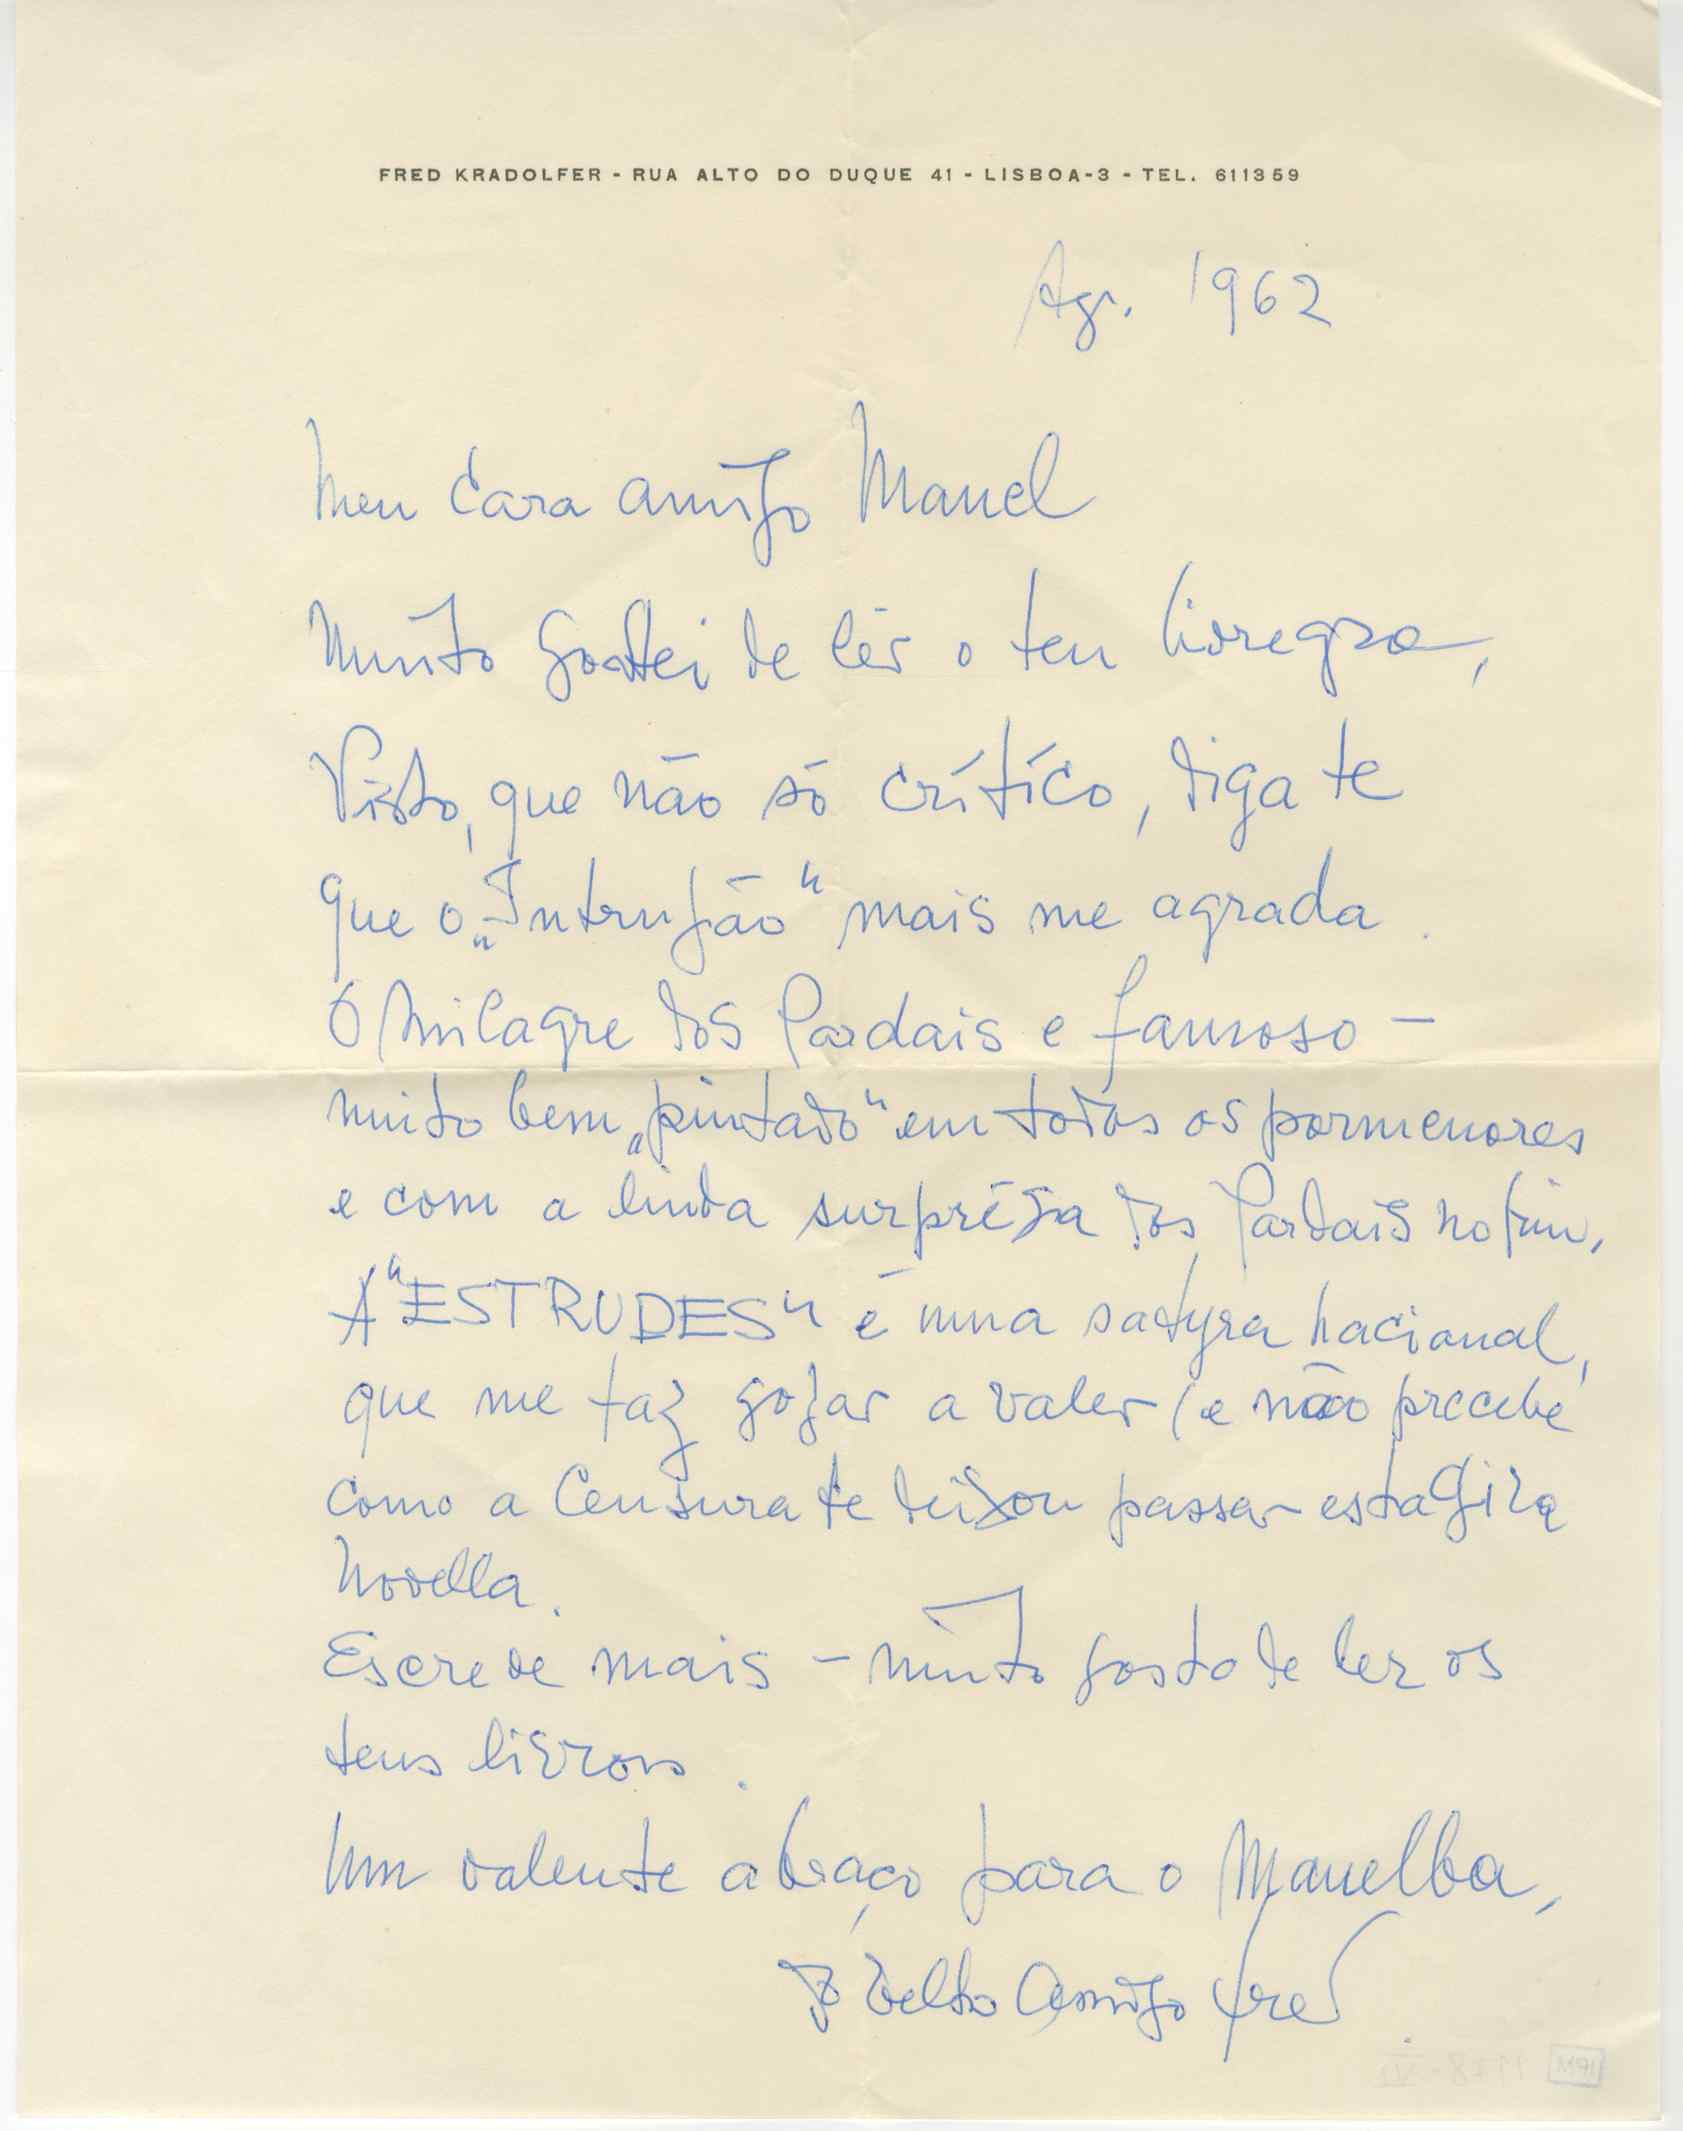 FRED KRADOLFER - RUA ALTO DO DUQUE 41 - LISBOA-3 - TEL. 611359
Agr. 1962
Meu Cara amigo Manel
Muito gostei de lêr o teu
Visto, que não só crítico, diga te
que o „Intrujão" mais me agrada.
O Milagre dos Pardais e famoso -
muito bem „pintado" em todos os pormenores
e com a linda surprêsa dos Pardais no fim.
A "ESTRUDES" é uma satyra nacional,
que me faz gozar a valer (e não precebe
como a Censura te deixou passar esta Gira
Novella.
Escreve mais - muito gosto de ler os
teus livros.
Um valente abraço para o
Velho Amigo Fred